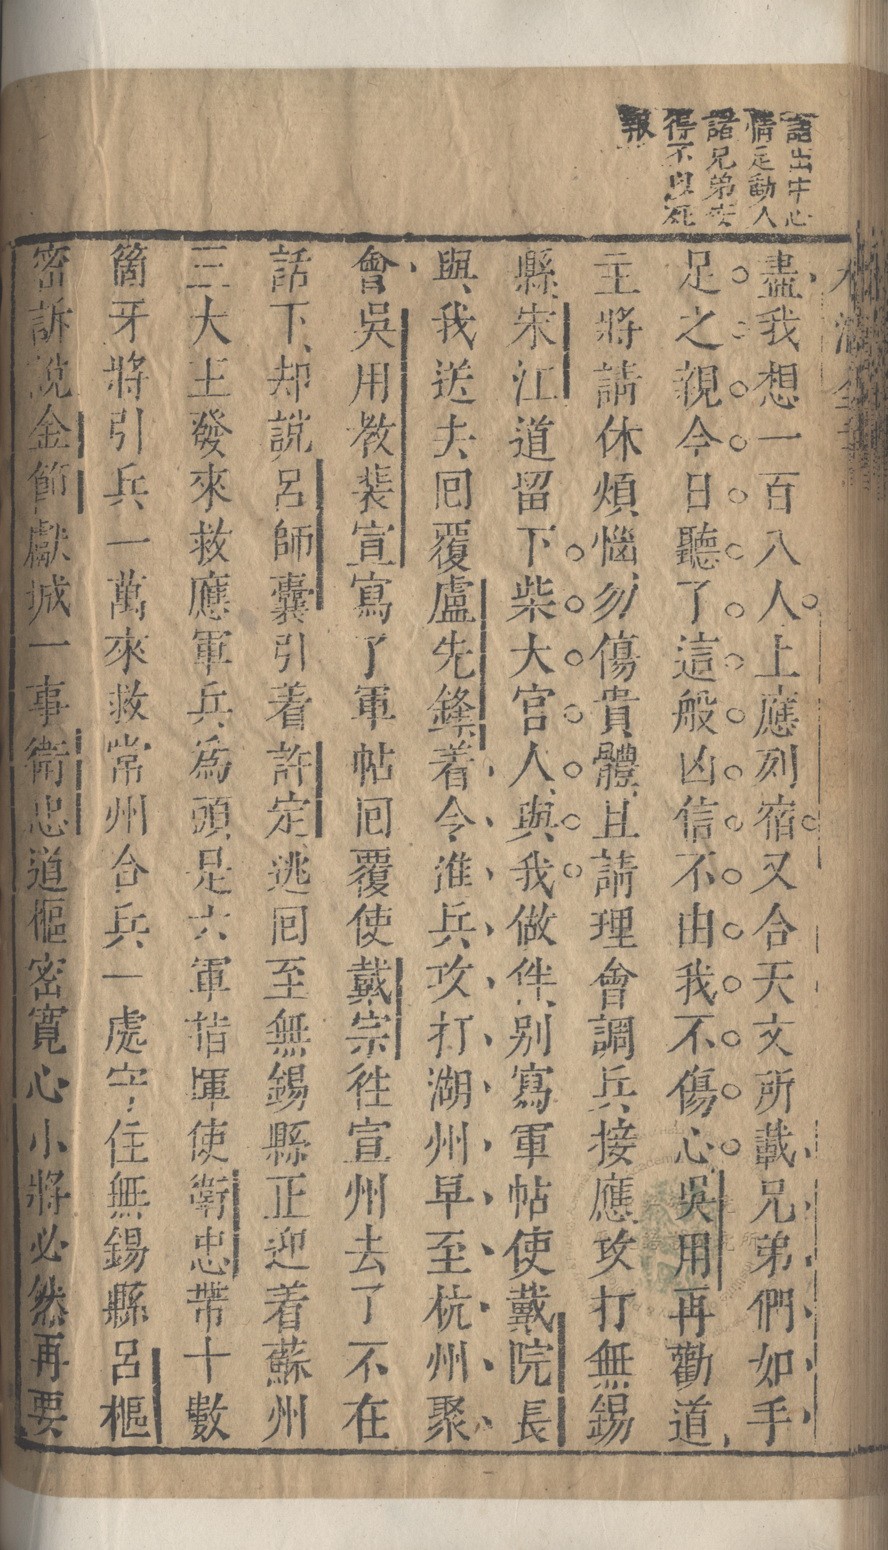 語出中心
情足動人
諸兄弟安
得不以死
報
水滸全
盡我想一百八人上應列宿又合天文所載兄弟們如手
足之親今日聽了這般凶信不由我不傷心吳用再勸道
主將請休煩惱勿傷貴體且請理會調兵接應攻打無錫
縣宋江道留下柴大官人與我做伴別寫軍帖使戴院長
與我送去回覆盧先鋒着令進兵攻打湖州早至杭州聚
會吳用教裴宣寫了軍帖回覆使戴宗徃宣州去了不在
話下却說呂師囊引着許定逃回至無錫縣正迎着蘇州
三大王發來救應軍兵為頭是六軍指揮使衛忠帶十數
箇牙將引兵一萬來救常州合兵一處守住無錫縣呂樞
密訴說金節獻城一事衛忠道樞密寬心小將必然再要